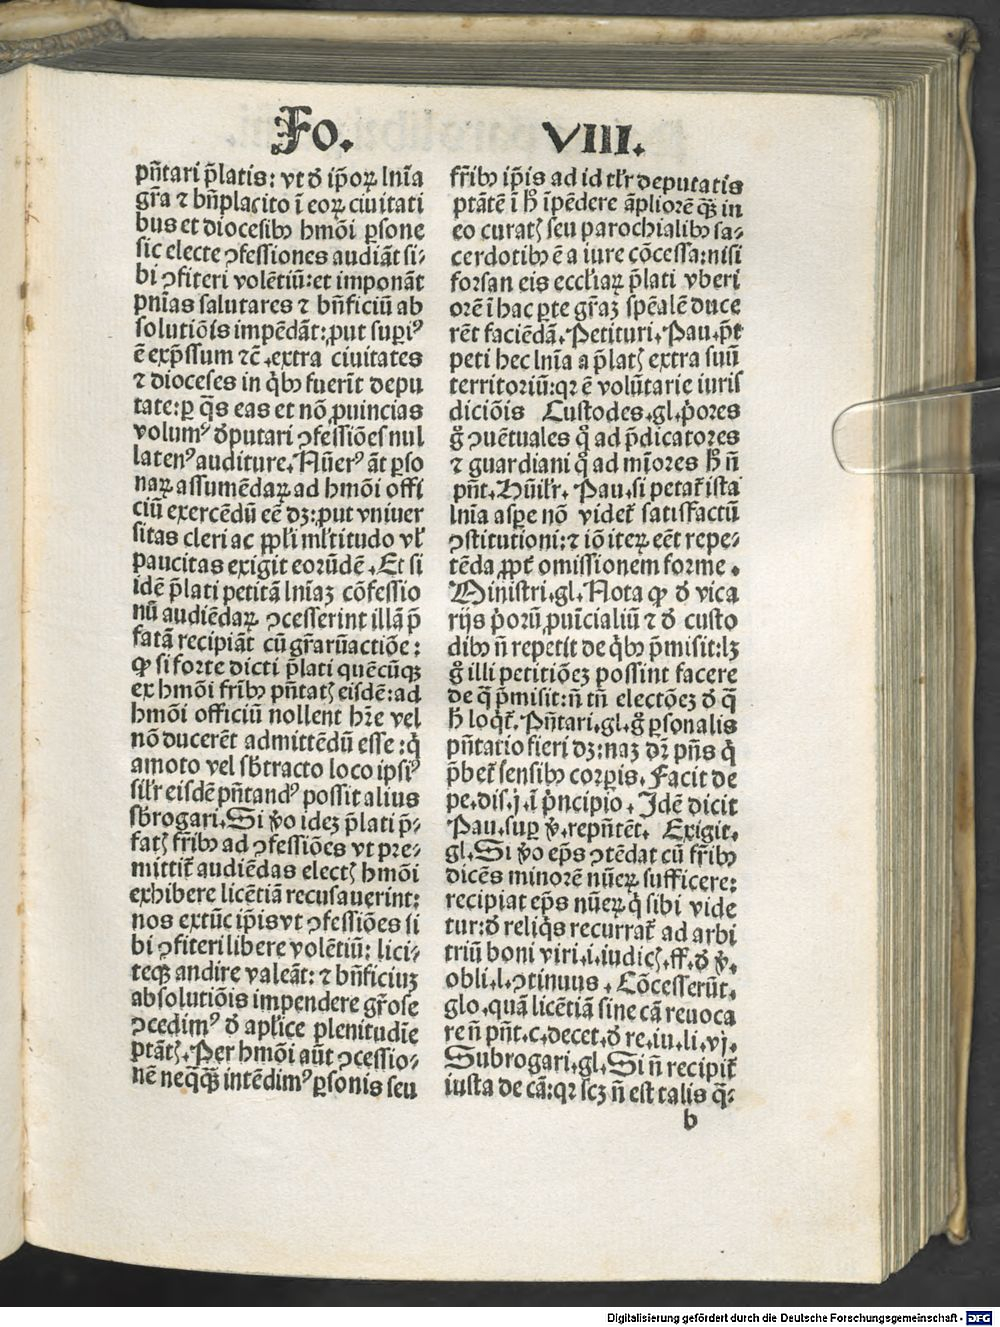 Fo. VIII.
pñtari p̃latis: vt ꝺ ip̃oꝝ lnĩa
gr̃a ⁊ bñplacito ĩ eoꝝ ciuitati
bus et diocesibꝰ hmõi ꝑsone
sic electe ꝯfessiones audiãt si-
bi ꝯfiteri volẽtiũ: et imponãt
pnĩas salutares ⁊ bñficiũ ab
solutiõis impẽdãt: ꝓut supiꝰ
ẽ exp̃ssum ⁊c̃. extra ciuitates
⁊ dioceses in q̃bꝰ fuerĩt depu
tate: ꝑ q̃s eas et nõ ꝓuincias
volumꝰ ꝺputari ꝯfessiões nul
latenꝰ auditure. Nũerꝰ ãt ꝑso
naꝝ assumẽdaꝝ ad hmõi offi
ciũ exercẽdũ eẽ dꝫ: ꝓut vniuer
sitas cleri ac ppl̃i ml̃titudo vl̃
paucitas exigit eorũdẽ. Et si
idẽ p̃lati petitã lnĩaꝫ cõfessio
nũ audiẽdaꝝ ꝯcesserint illã p̃
fatã recipiãt cũ gr̃arũactiõe:
ꝙ si forte dicti p̃lati quẽcũqꝫ
ex hmõi fr̃ibꝰ pñtatꝭ eisdẽ: ad
hmõi officiũ nollent hr̃e vel
nõ ducerẽt admittẽdũ esse: q̇
amoto vel sb̃tracto loco ipsiꝰ
sil̃r eisdẽ pñtandꝰ possit alius
sb̃rogari. Si v̊o ideꝫ p̃lati p̃-
fatꝭ fr̃ibꝰ ad ꝯfessiões vt pre-
mittit̃ audiẽdas electꝭ hmõi
exhibere licẽtiã recusauerint:
nos extũc ip̃is vt ꝯfessiões si
bi ꝯfiteri libere volẽtiũ: lici-
teqꝫ andire valeãt: ⁊ bñficiuꝫ
absolutiõis impendere gr̃ose
ꝯcedimꝰ ꝺ apl̃ice plenitudĩe
ptãtꝭ. Per hmõi aũt ꝯcessio-
nẽ neq̃qꝫ intẽdimꝰ ꝑsonis seu
fr̃ibꝰ ip̃is ad id tl̃r deputatis
ptãtẽ ĩ h̃ ĩpẽdere ãpliorẽ qꝫ in
eo curatꝭ seu parochialibꝰ sa-
cerdotibꝰ ẽ a iure cõcessa: nisi
forsan eis eccl̃iaꝝ p̃lati vberi
orẽ ĩ hac ꝑte gr̃aꝫ sp̃ealẽ duce
rẽt faciẽdã. Petituri. Pau. p̃t
peti hec lnĩa a p̃latꝭ extra suũ
territoriũ: qꝛ ẽ volũtarie iuris
diciõis Custodes. gl. p̊ores
g̊ ꝯuẽtuales q̊ ad p̃dicatores
⁊ guardiani q̊ ad mĩores h̃ ñ
pñt. Hũil̃r. Pau. si petat̃ ista
lnĩa aspe nõ videt̃ satisfactũ
ꝯstitutioni: ⁊ iõ iteꝝ eẽt repe-
tẽda ꝓpt̃ omissionem forme.
Ministri. gl. Nota ꝙ ꝺ vica
rijs p̊orũ ꝓuĩcialiũ ⁊ ꝺ custo
dibꝰ ñ repetit de q̃bꝰ p̃misit: lꝫ
g̊ illi petitiõeꝫ possint facere
de q̃ p̃misit: ñ tñ electõeꝫ ꝺ q̃
h̃ loq̃t̃. Pñtari. gl. g̊ ꝑsonalis
pñtatio fieri dꝫ: naꝫ dr̃ pñs q̇
p̃bet̃ sensibꝰ corꝑis. Facit de
pe. dis. j. ĩ p̊ncipio. Idẽ dicit
Pau. suꝑ v̊. repñtẽt. Exigit.
gl. Si v̊o ep̃s ꝯtẽdat cũ fr̃ibꝰ
dicẽs minorẽ nũeꝝ sufficere:
recipiat ep̃s nũeꝝ q̇ sibi vide
tur: ꝺ reliq̃s recurrat̃ ad arbi
triũ boni viri. i. iudicꝭ. ff. ꝺ v̊.
obli. l. ꝯtinuus. Cõcesserũt.
glo. quã licẽtiã sine cã reuoca
re ñ pñt. c. decet. ꝺ re. iu. li. vj.
Subrogari. gl. Si ñ recipit̃
iusta de cã: qꝛ scꝫ ñ est talis q̃-
b
Digitalisierung gefördert durch die Deutsche Forschungsgemeinschaft - DFG